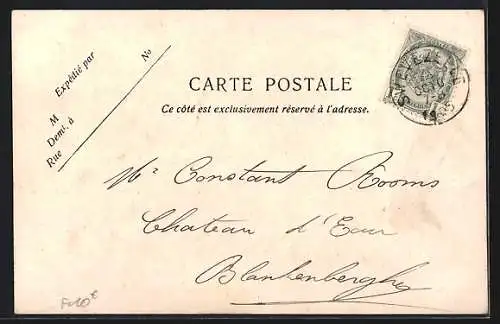 Expédié par
No
M
Demt. à
Rue
CARTE POSTALE
Ce côté est exclusivement réservé à l'adresse.
Mr Constant Rooms
Chateau d'Eau
Blankenberghe